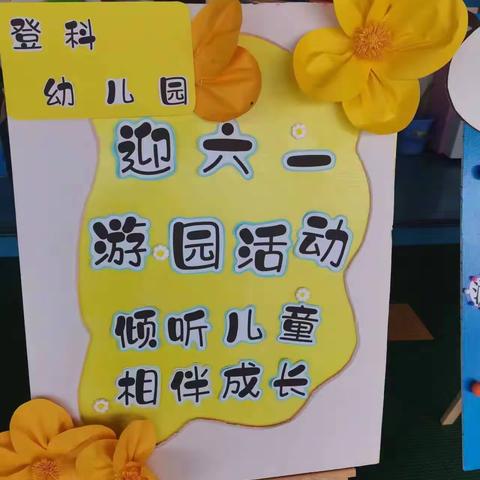 登科
幼儿园
迎六一
游园活动
倾听儿童
相伴成长